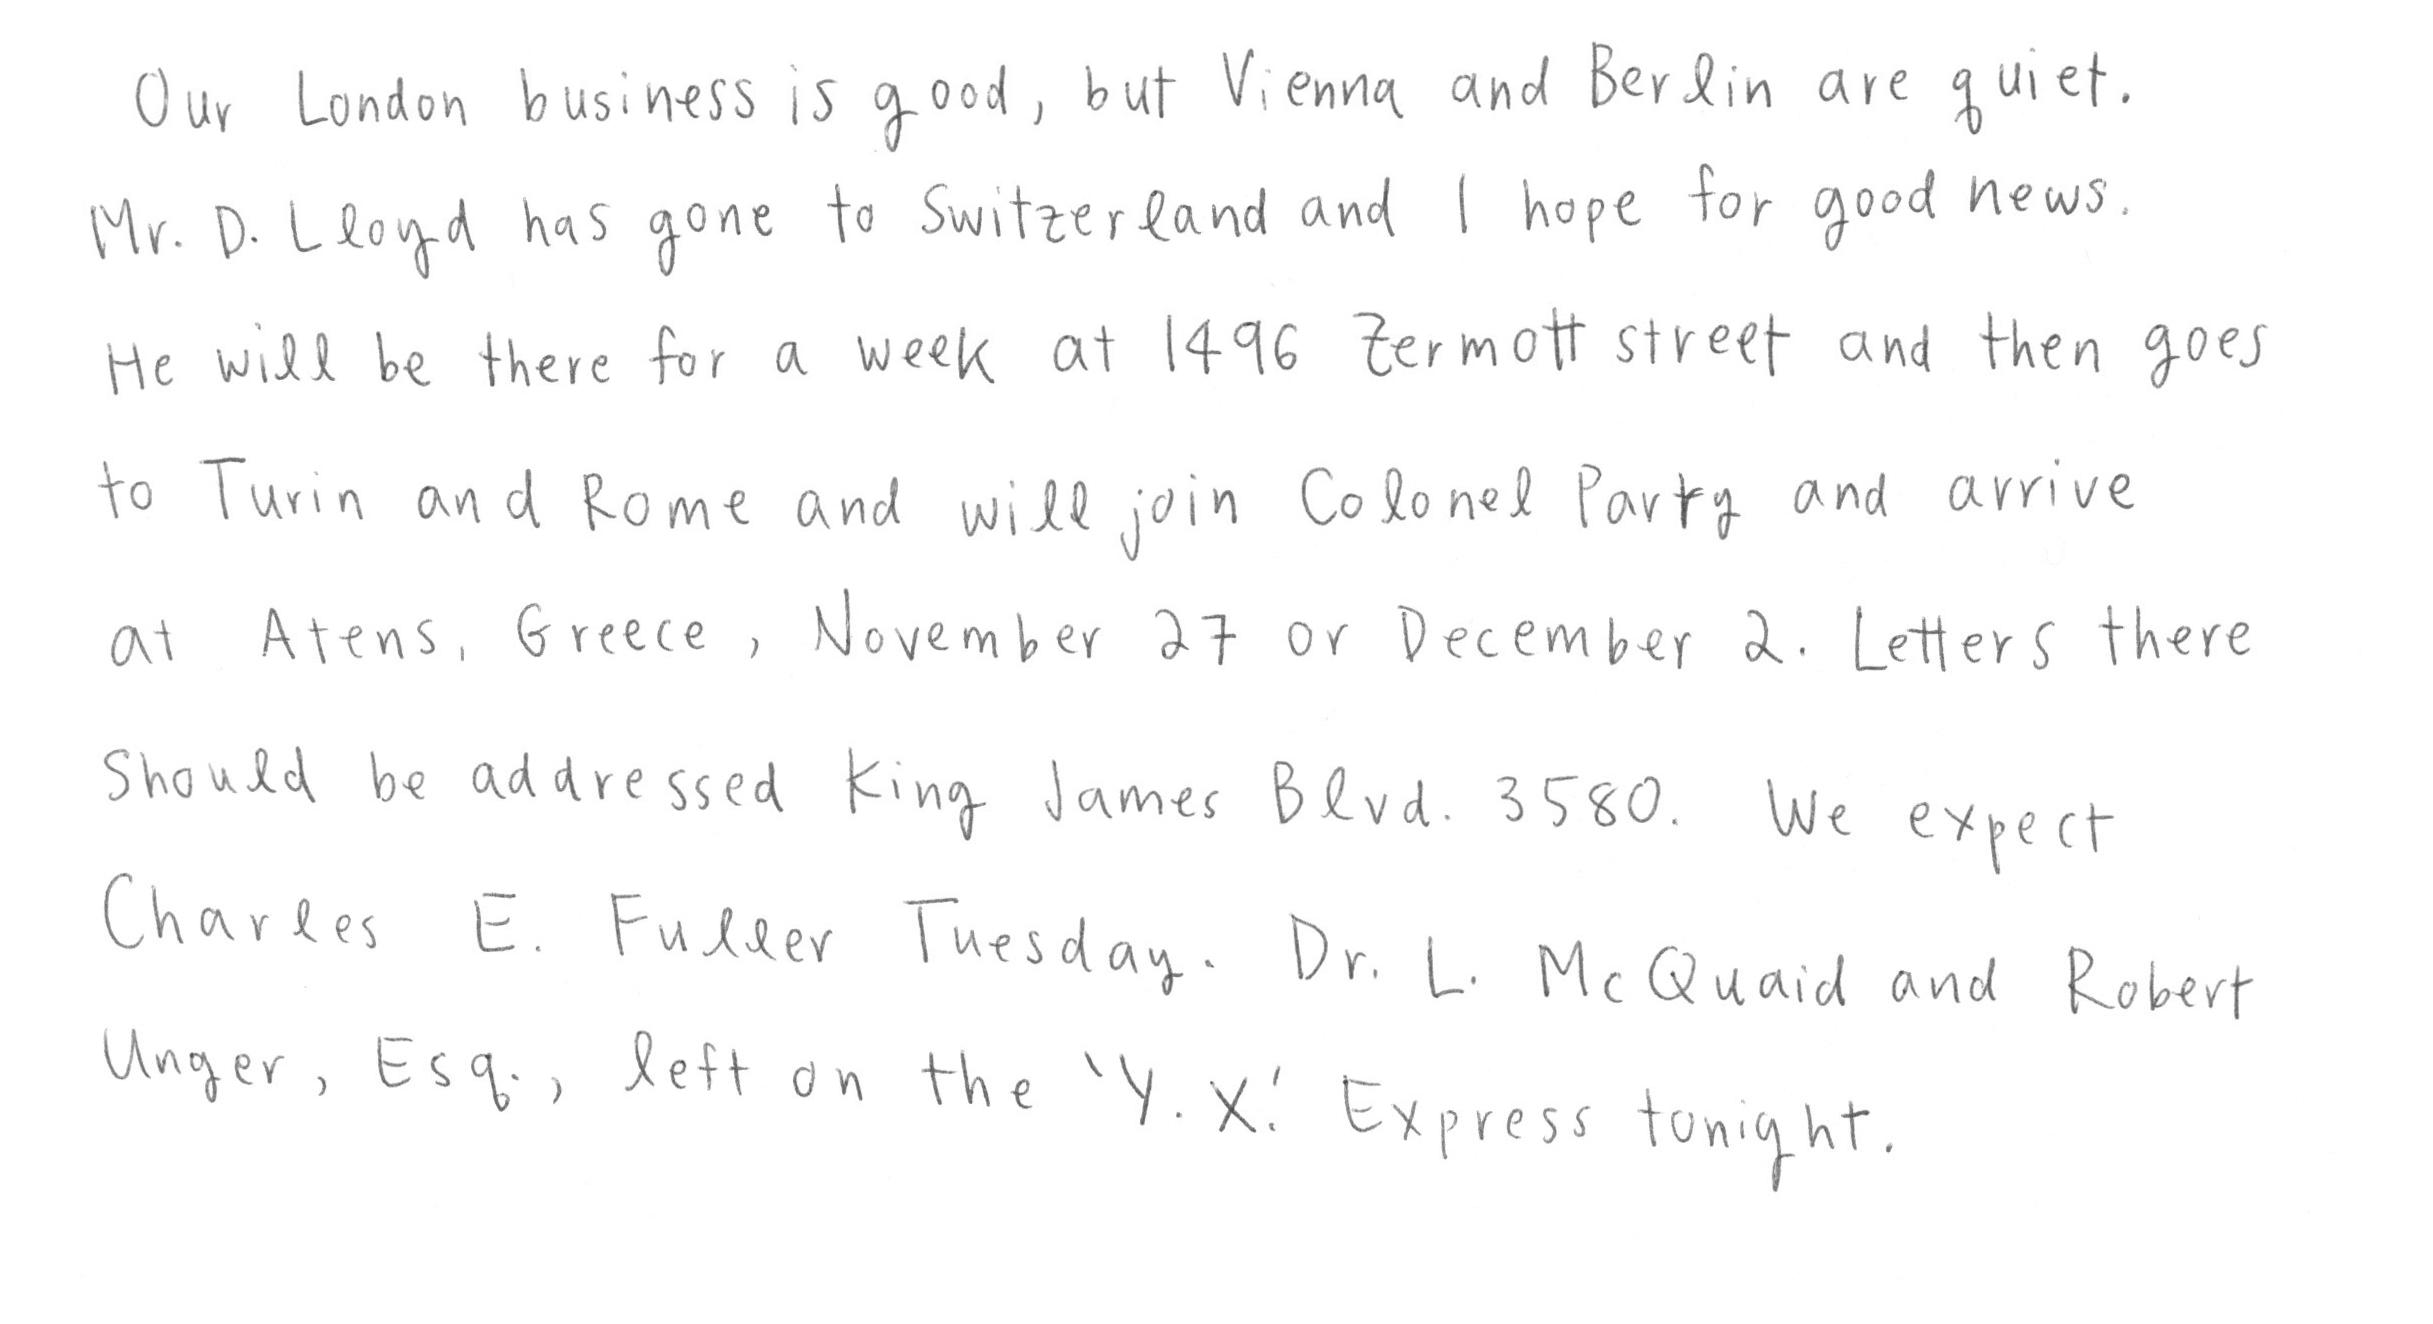 Our London business is good, but Vienna and Berlin are quiet.
Mr. D. Lloyd has gone to Switzerland and I hope for good news.
He will be there for a week at 1496 Zermott street and then goes
to Turin and Rome and will join Colonel Parry and arrive
at Atens, Greece, November 27 or December 2. Letters there
should be addressed King James Blvd. 3580. We expect
Charles E. Fuller Tuesday. Dr. L. McQuaid and Robert
Unger, Esq., left on the 'Y.X.' Express tonight.